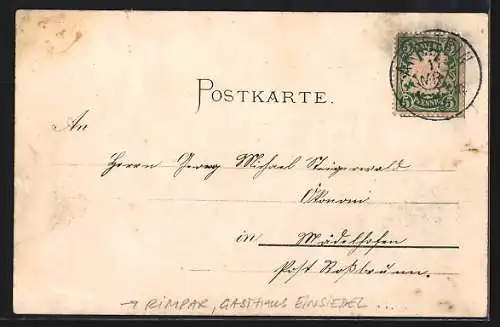 POSTKARTE.
5 5
PFENNIG
An
Herrn Georg Michael Steigerwald
Ökonom
in Mädelhofen
Post Roßbrunn.
→ RIMPAR, GASTHAUS EINSIEDEL ...